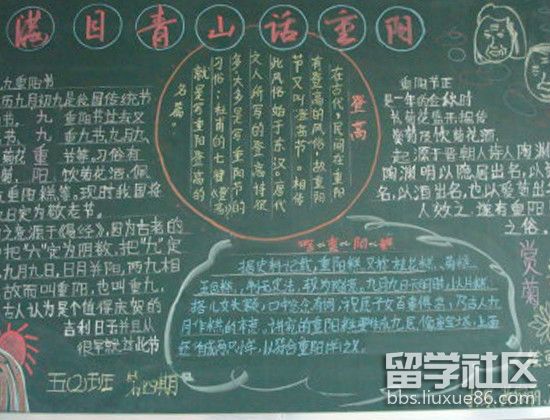 满目青山话重阳
九重阳节
历九月初九是我国传统节
节 九 重阳节 又
节 九 重九节九月九
菊花 重 节等。习俗有
萸、 阳 饮菊花酒、佩
重阳糕等。现时我国将
日定为敬老节。
之意源于《易经》,因为古老的
中把“六”定为阴数,把“九”定
九月九日,日月并阳,两九相
故而叫重阳,也叫重九,
古人认为是个值得庆贺的
吉利日子并且从
很早就过此节
五(2)班 第9期
登高
在古代,民间在重阳
有登高的风俗,故重阳
节又叫登高节。相传
此风俗始于东汉。唐代
文人所写的登高诗很
多,大多是写重阳节的
习俗;杜甫的七律《登高》
就是写重阳登高的
名篇。
吃 重 阳 糕
据史料记载,重阳糕又称花糕、菊糕、
五色糕,制无定法,较为随意。九月九日天明时,以片糕
搭儿女头额,口中念念有词,祝愿子女百事俱高,乃古人九
月作糕的本意。讲究的重阳糕要作成九层,像座宝塔,上面
还作成两只小羊,以符合重阳(羊)之义。
重阳节正
是一年的金秋时
节,菊花盛开,据传
赏菊及饮菊花酒,
起 源于晋朝大诗人陶渊
陶渊明以隐居出名,以
名,以酒出名,也以爱菊出名
人效之,遂有重阳
之俗。
赏菊
留学社区
bbs.liuxue86.com